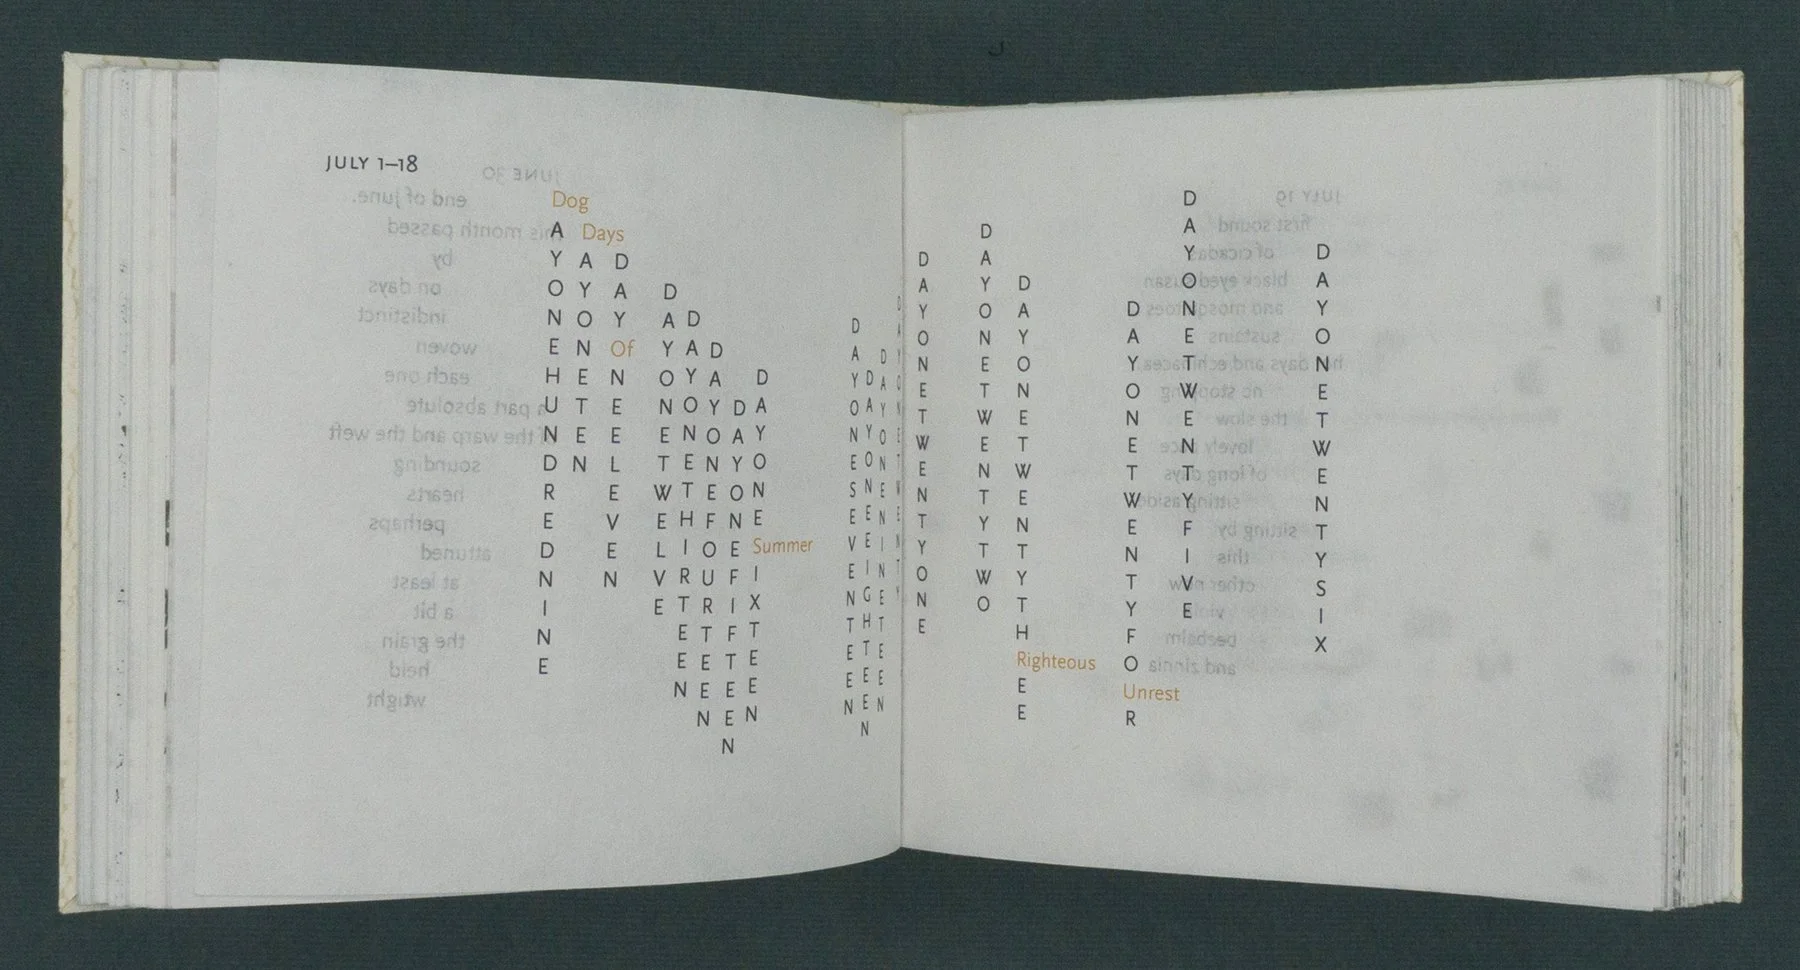 JULY 1–18
Dog AYONEHUNDREDNINE
Days AYONETEN
DAY Of NEELEVEN
DAYONETWELVE
DAYONETHIRTEEN
DAYONEFOURTEEN
DAYONEFIFTEEN
DAYONE Summer IXTEEN
DAYONESEVENTEEN
DAYONEEIGHTEEN
DAYONENINETEEN
DAYONETWENTY
DAYONETWENTYONE
DAYONETWENTYTWO
DAYONETWENTYTH Righteous EE
DAYONETWENTYFO Unrest R
DAYONETWENTYFIVE
DAYONETWENTYSIX